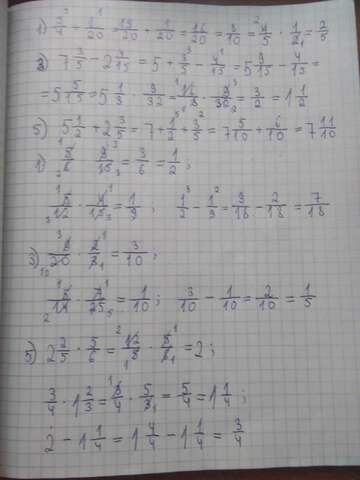 1) 3/4 + 1/20 = 15/20 + 1/20 = 16/20 = 8/10 = 4/5 · 1/2 = 2/5
3) 7 3/5 - 2 4/15 = 5 + 3/5 - 4/15 = 5 9/15 - 4/15 =
= 5 5/15 = 5 1/3 · 9/32 = 16/3 · 9/32 = 3/2 = 1 1/2
5) 5 1/2 + 2 3/5 = 7 + 1/2 + 3/5 = 7 5/10 + 6/10 = 7 11/10
1) 5/8 · 8/15 = 3/6 = 1/2 ;
5/12 · 4/15 = 1/9 ; 1/2 - 1/9 = 9/18 - 2/18 = 7/18
3) 9/20 · 2/3 = 3/10 ;
5/14 · 7/25 = 1/10 ; 3/10 - 1/10 = 2/10 = 1/5
5) 2 2/5 · 5/6 = 12/5 · 5/6 = 2 ;
3/4 · 1 2/3 = 3/4 · 5/3 = 5/4 = 1 1/4 ;
2 - 1 1/4 = 1 4/4 - 1 1/4 = 3/4